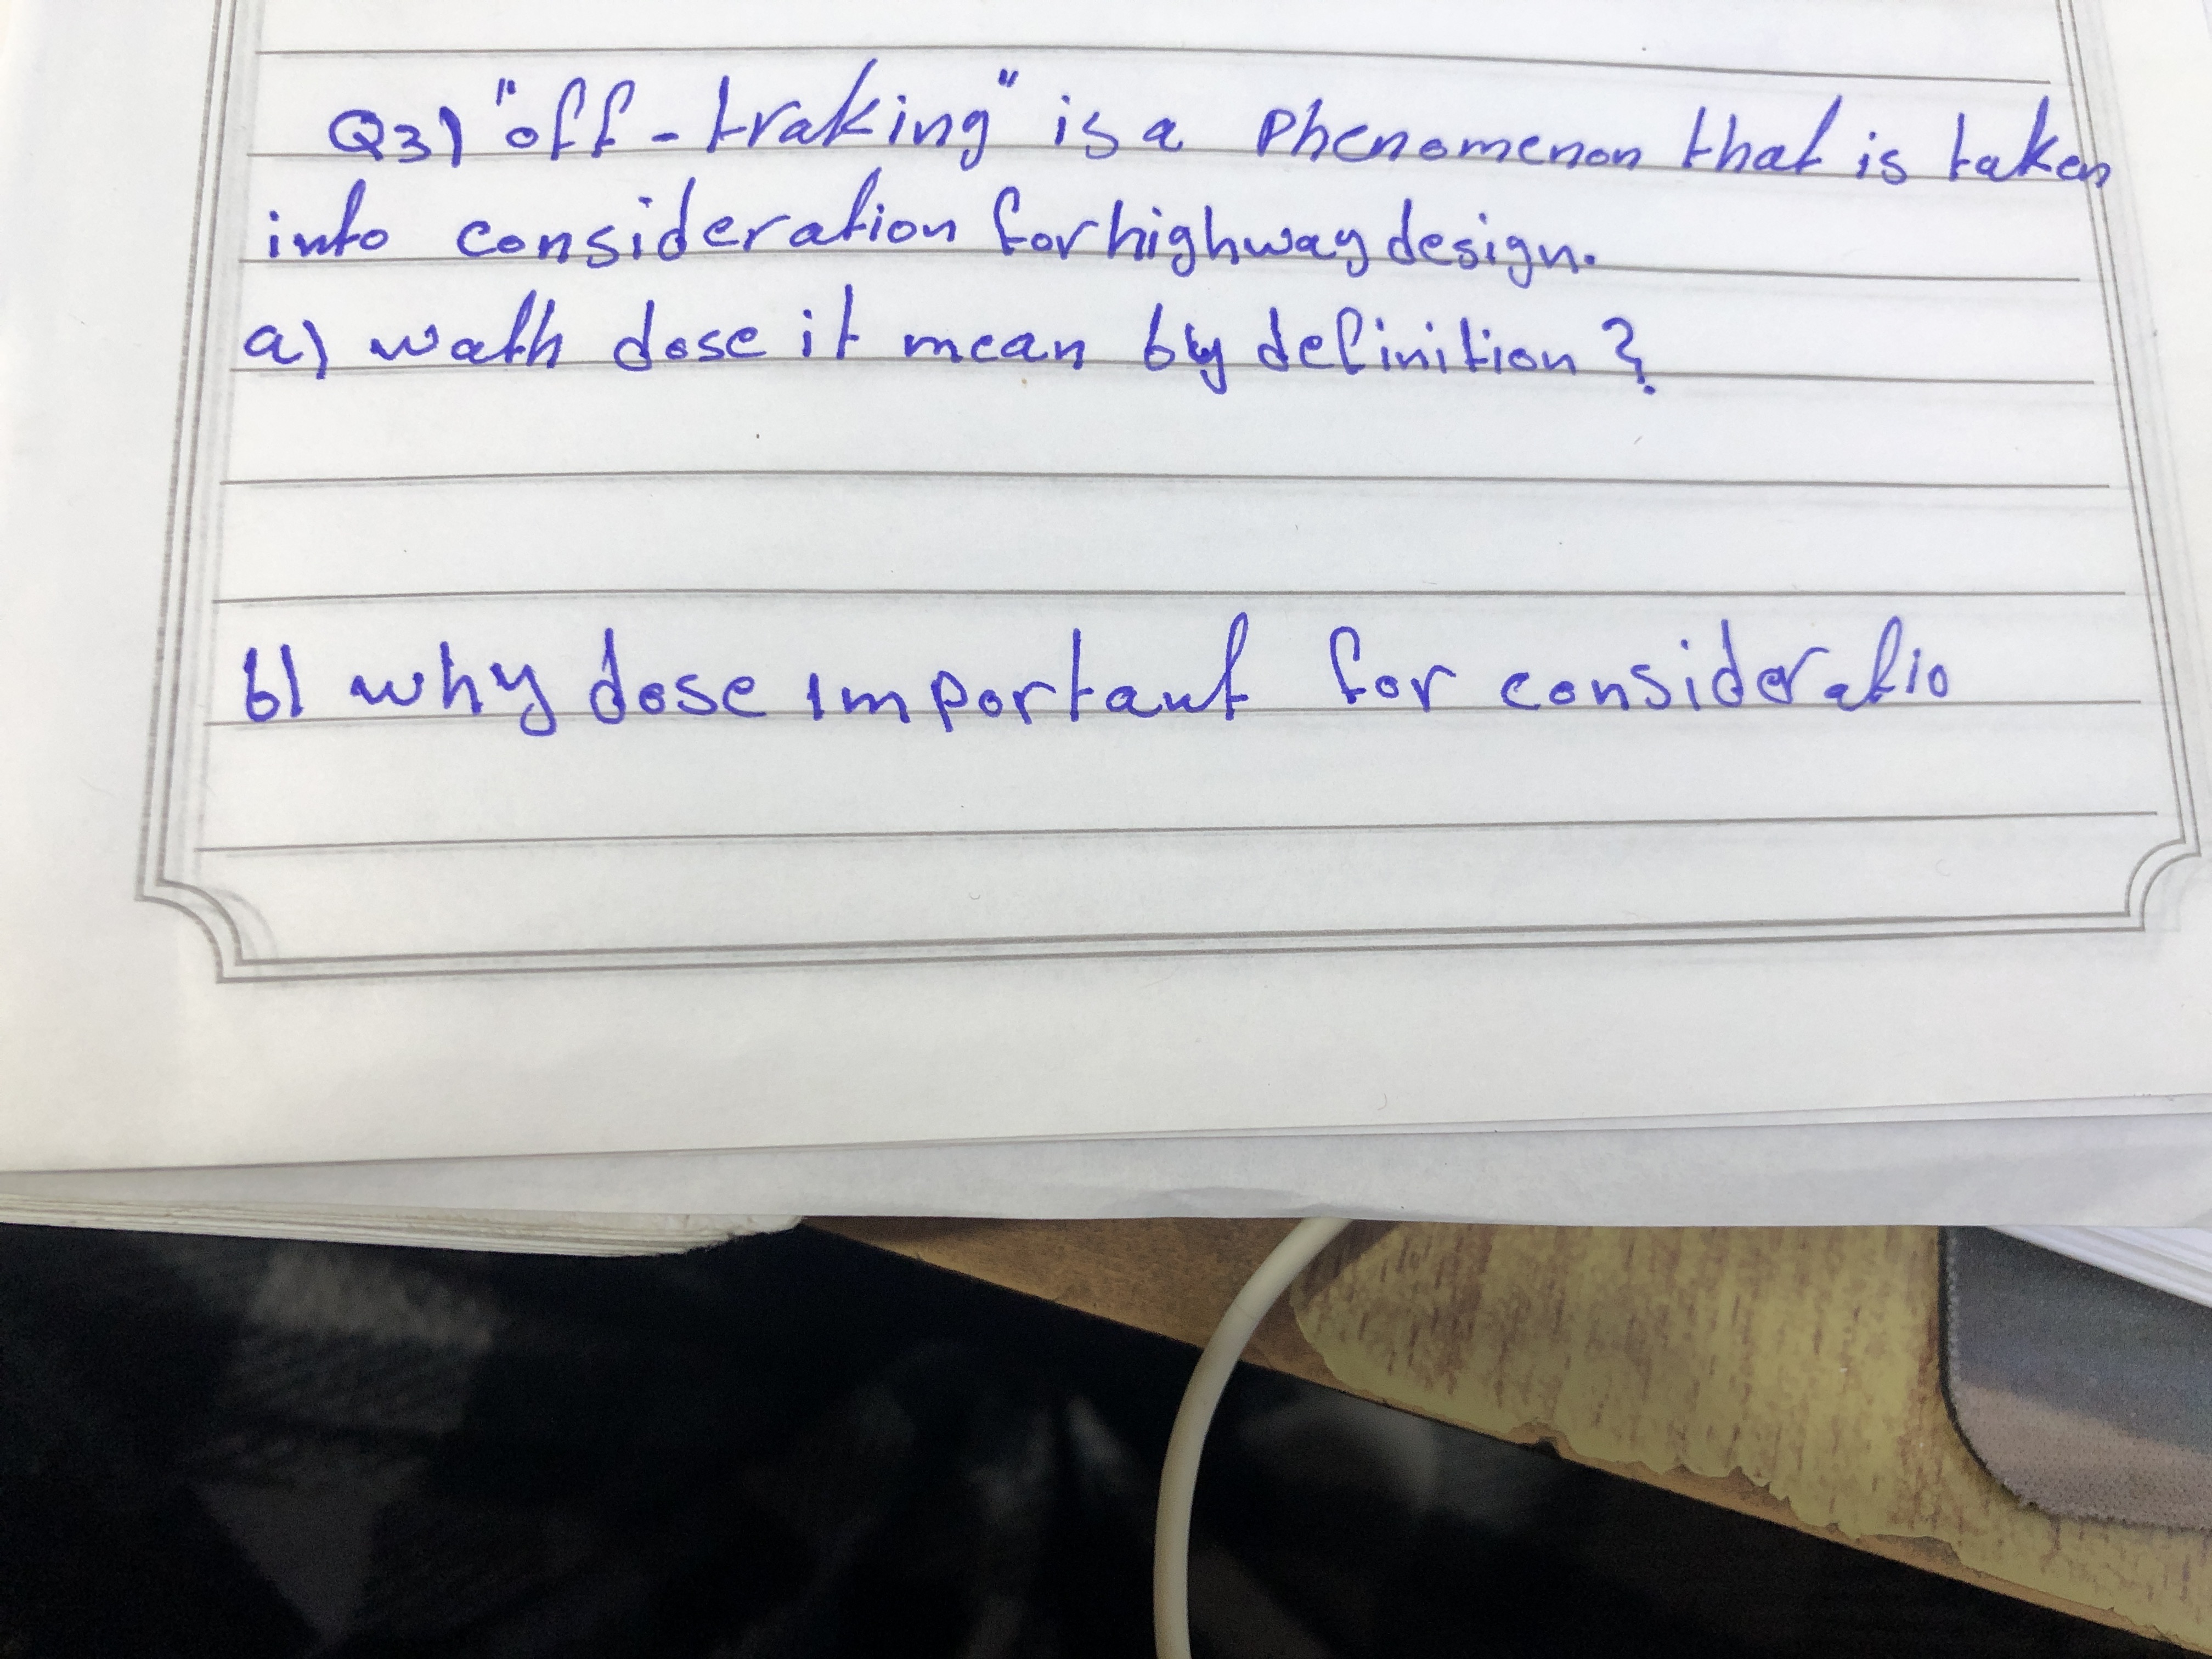 Q3) "off-traking" is a phenomenon that is taken
into consideration for highway design.
a) wath dose it mean by definition?
b) why dose important for consideratio